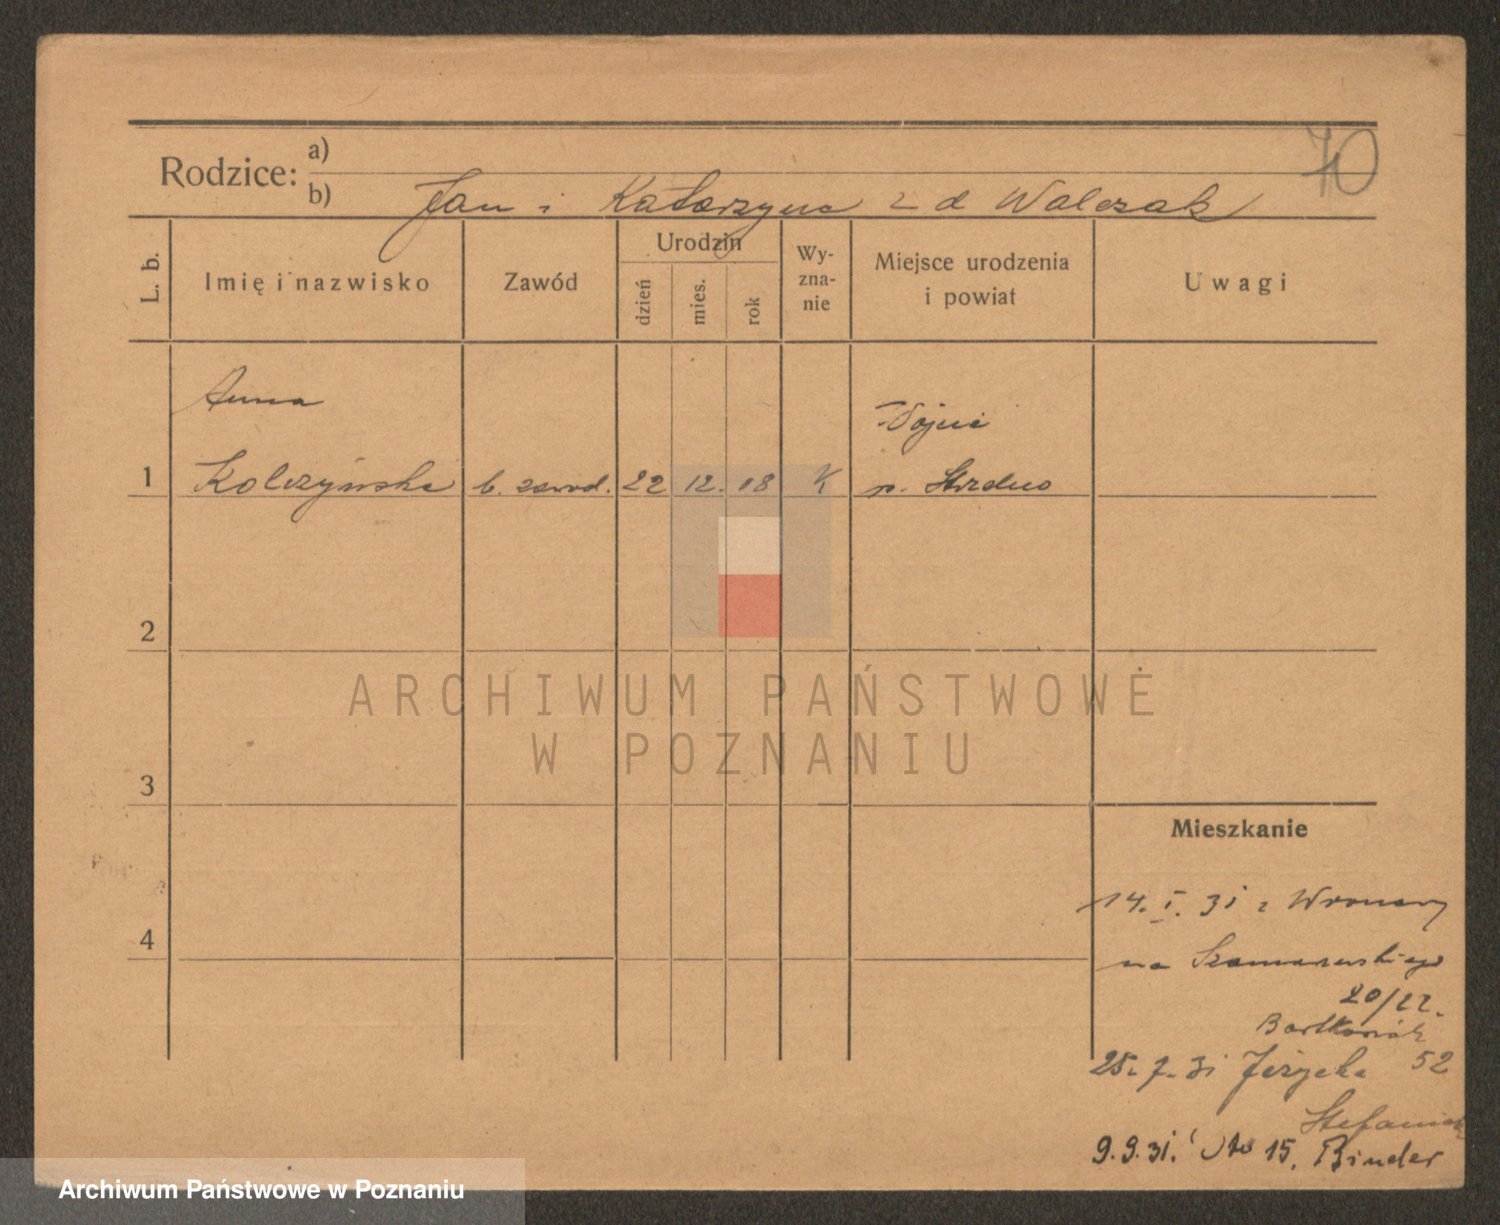 70
Rodzice: a)
b) Jan i Katarzyna z d Walczak
L. b.
Imię i nazwisko
Zawód
Urodzin
dzień
mies.
rok
Wy-
zna-
nie
Miejsce urodzenia
i powiat
Uwagi
Anna
Wójcin
1 Kolczyńska b. zawod. 22 12. 08 K p. Strzelno
2
ARCHIWUM PAŃSTWOWE
W POZNANIU
3
Mieszkanie
14. I. 31 z Wronczy
4
na Szamarzewskiego
20/22.
Bartkowiak
25. 7. 31 Jeżycka 52
Stefaniak
9. 9. 31. 15. Binder
Archiwum Państwowe w Poznaniu